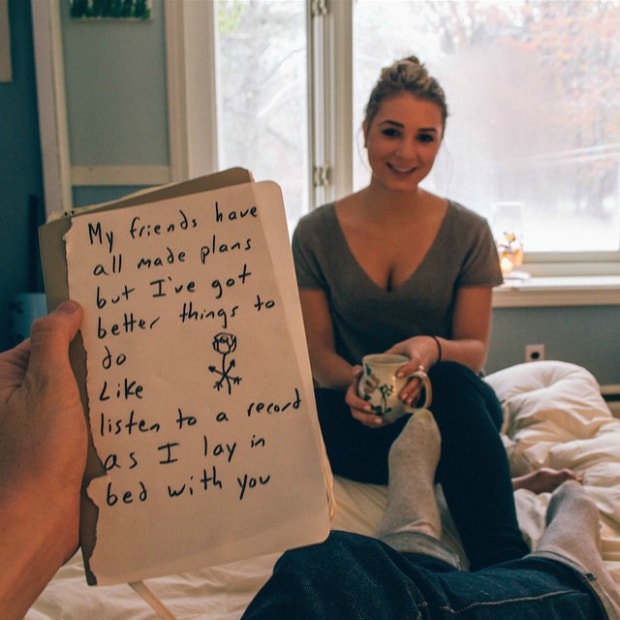 My friends have
all made plans
but I've got
better things to
do
Like
listen to a record
as I lay in
bed with you